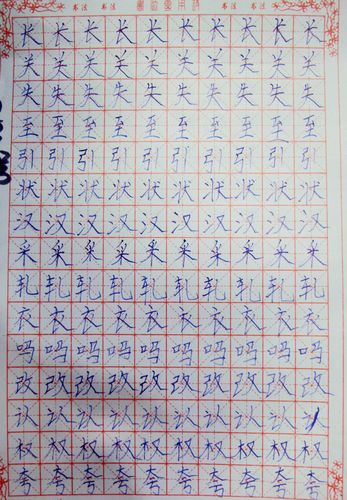 书法 书法 书法 书法
长长长长长长长长长长
关关关关关关关关关关
失失失失失失失失失失
至至至至至至至至至至
引引引引引引引引引引
状状状状状状状状状状
汉汉汉汉汉汉汉汉汉汉
采采采采采采采采采采
轧轧轧轧轧轧轧轧轧轧
衣衣衣衣衣衣衣衣衣衣
吗吗吗吗吗吗吗吗吗吗
改改改改改改改改改改
认认认认认认认认认认
权权权权权权权权权权
夸夸夸夸夸夸夸夸夸夸